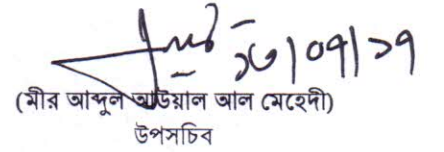 ১৩/০৭/১৭
(মীর আব্দুল আউয়াল আল মেহেদী)
উপসচিব